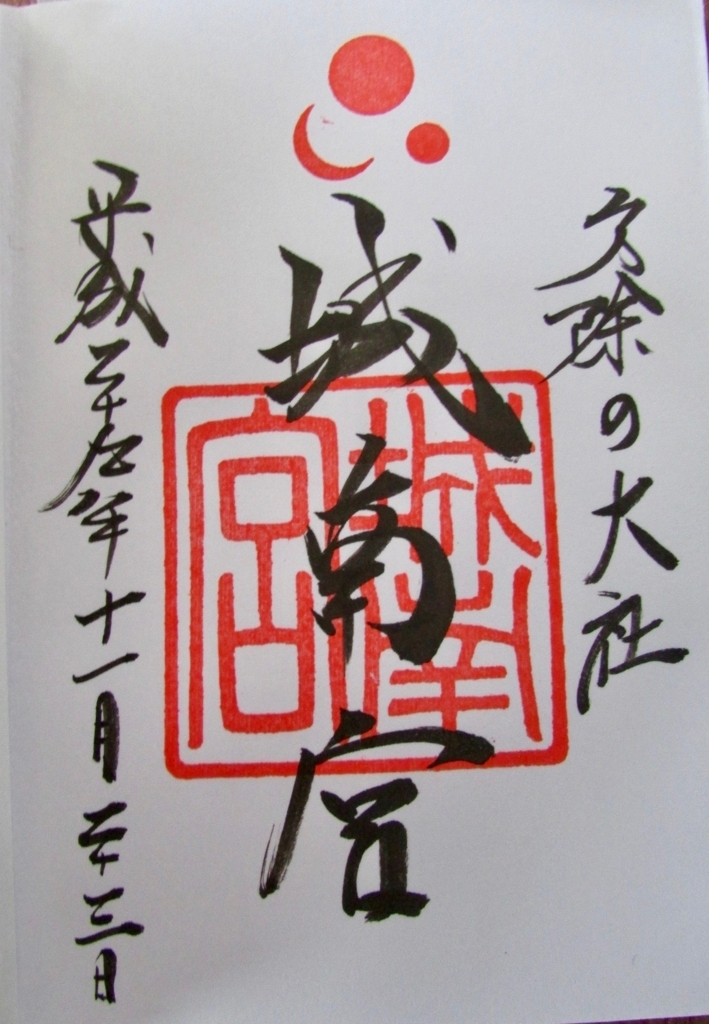 方除の大社
城南宮
城南宮
平成二十五年十一月二十三日